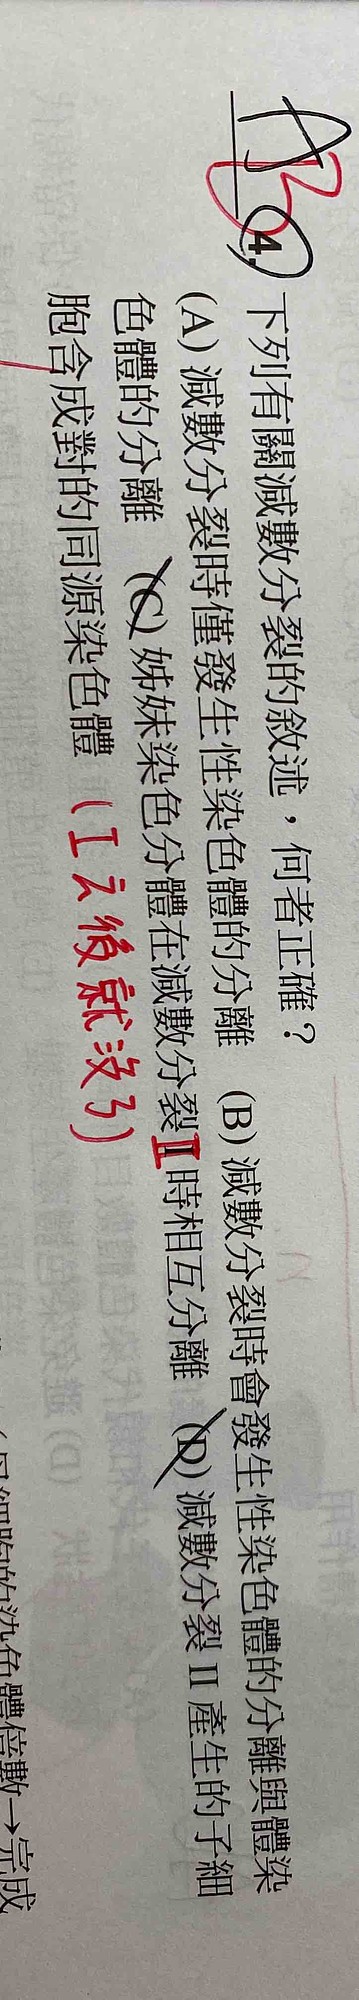 AB 4. 下列有關減數分裂的敘述，何者正確？
(A) 減數分裂時僅發生性染色體的分離 (B) 減數分裂時會發生性染色體的分離與體染
色體的分離 (C) 姊妹染色分體在減數分裂Ⅱ時相互分離 (D) 減數分裂 II 產生的子細
胞含成對的同源染色體 (I云後就沒了)
母細胞的染色體倍數→完成